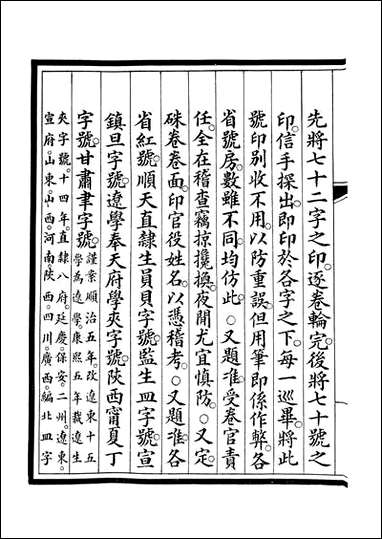 先將七十二字之印。逐卷輪完。後將七十號之
印。信手探出。即印於各字之下。每一巡畢。將此
號印別收不用。以防重誤。但用筆即係作弊。各
省號房。數雖不同。均仿此。○又題准。受卷官責
任。全在稽查竊掠攙換。夜間尤宜慎防。○又定。
硃卷卷面。印官役姓名。以憑稽考。○又題准。各
省紅號。順天直隸生員貝字號。監生皿字號。宣
鎮旦字號。遼學奉天府學夾字號。陝西甯夏丁
字號。甘肅聿字號。
謹案順治五年。改遼東十五
學為遼學。康熙五年裁遼生
夾字號。十四年。直隸八府。延慶。保安。二州。遼東。
宣府。山東。山西。河南。陝西。四川。廣西。編北皿字